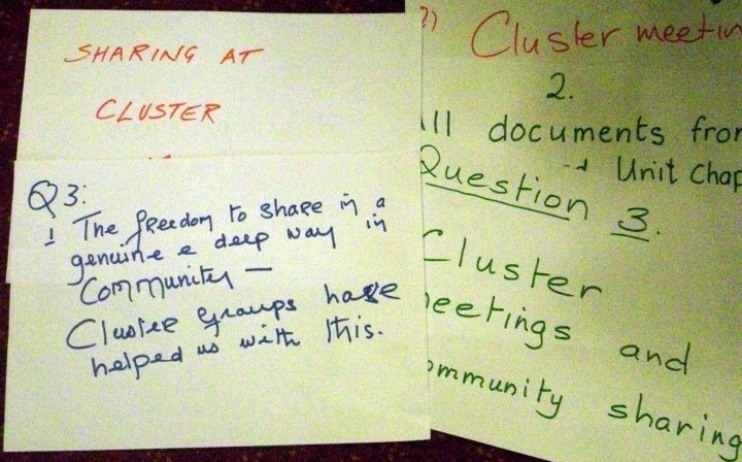 SHARING AT
CLUSTER
Q3:
! The freedom to share in a
genuine e deep way in
Community —
Cluster groups have
helped us with this.
2)
Cluster meetin
2.
ll documents from
d Unit Chap
Question 3.
Cluster
eetings and
ommunity sharing